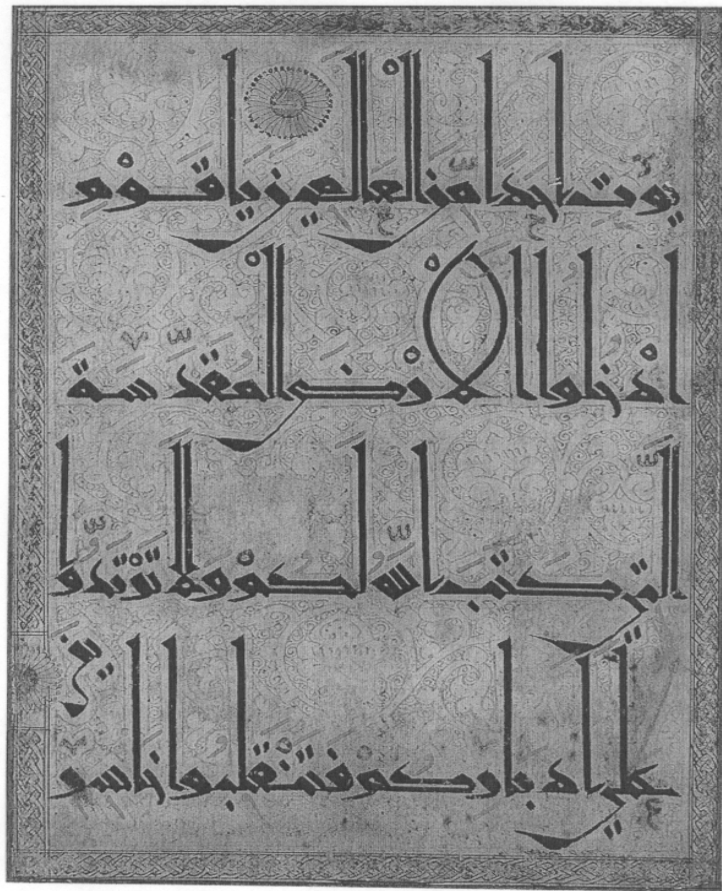 يؤت أحدا من العالمين يا قوم
ادخلوا الأرض المقدسة
التي كتب الله لكم ولا ترتدوا
على أدباركم فتنقلبوا خاسرين